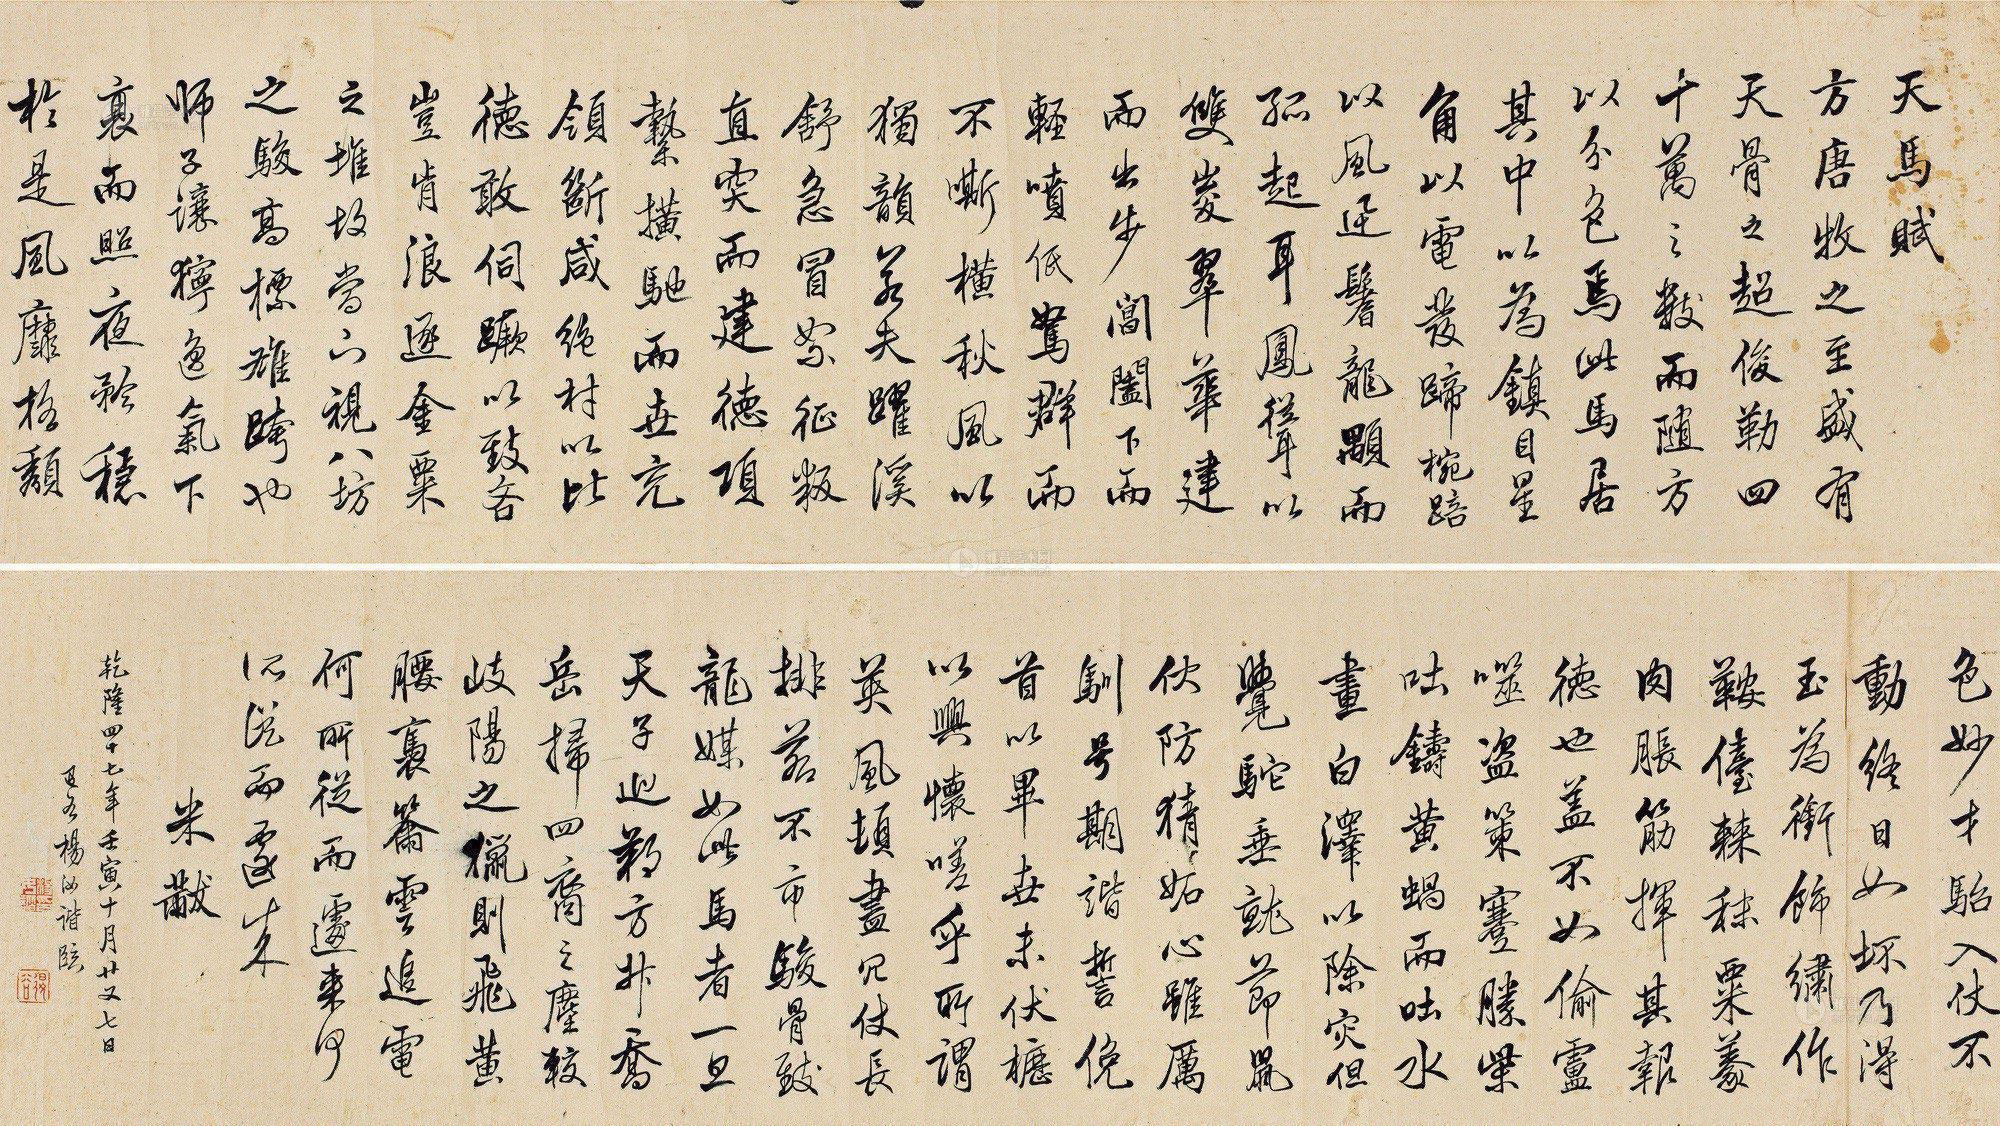 天馬賦
方唐牧之至盛有
天骨之超俊勒四
十萬之數而隨方
以分色焉此馬居
其中以為鎮目星
角以電發蹄椀踣
以風逆鬐龍顒而
孤起耳鳳聳以
雙峻翠華建
而出步閶闔下而
輕噴低駑群而
不嘶橫秋風以
獨韻若夫躍溪
舒急冒絮征叛
直突而建德項
縶橫馳而世充
領斷咸絕材以比
德敢伺蹶以致吝
豈肯浪逐金粟
之堆故當下視八坊
之駿高標雄跨也
師子讓獰逸氣下
裒而照夜矜穩
於是風靡格頹
色妙才駘入仗不
動終日如坏乃得
玉為銜飾繡作
鞍儓棘秣粟豢
肉脹筋揮其報
德也蓋不如偷盧
噬盜策蹇勝柴
吐鑄黃蝸而吐水
畫白澤以除灾但
覺駝垂就節鼠
伏防猜妬心雖厲
馴号期諧誓俛
首以畢世未伏櫪
以興懷嗟乎所謂
英風頓盡冗仗長
排若不市駿骨致
龍媒如此馬者一旦
天子巡朔方升喬
岳掃四裔之塵較
岐陽之獵則飛黃
腰裹籋雲追電
何所從而遽來何
所從而遽來
米黻
乾隆四十七年壬寅十月廿又七日
楊汝諧臨